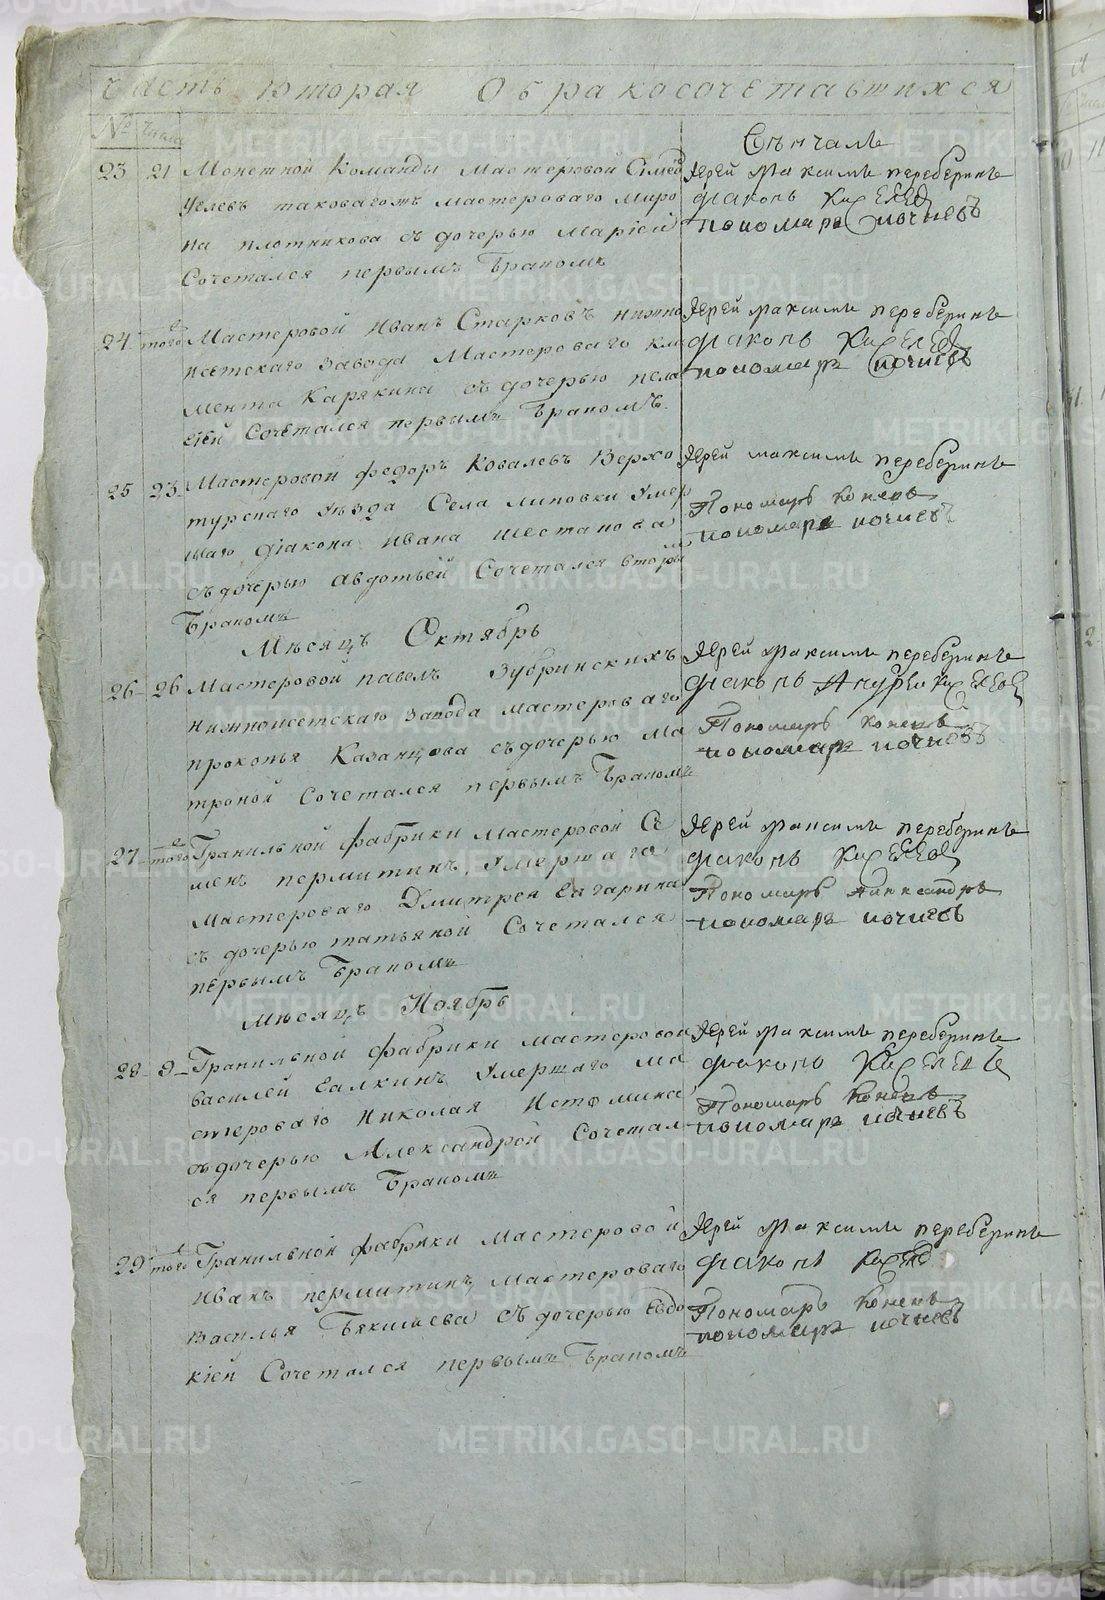 Часть вторая О бракосочетавшихся
№ числа
Вѣнчали
23 21 Монетной Команды Мастеровой Сѵмео
Углевъ таковагожъ мастероваго Миро
на плотникова съ дочерью Маріей
Сочетался первымъ Бракомъ
Іерей Максимъ переберинъ
діаконъ
пономарь почиевъ
24 того Мастеровой Иванъ Старковъ нижно
исетскаго Завода Мастероваго кли
мента Карякина съ дочерью пела
геей Сочетался первымъ Бракомъ
Іерей максимъ переберинъ
діаконъ
пономарь почиевъ
25 23 Мастеровой федоръ Ковалевъ Верхо
турскаго уѣзда Села липовки умер
шаго діакона Ивана шестакова
съ дочерью Авдотьей Сочетался вторы
Бракомъ
Іерей максимъ переберинъ
Пономарь
пономарь почиевъ
Мѣсяцъ Октябрь
26 26 Мастеровой павелъ Зубринскихъ
нижноисетскаго завода мастероваго
прокопья Казанцова съ дочерью Ма
троной Сочетался первымъ Бракомъ
Іерей Максимъ переберинъ
діаконъ Андрей
Пономарь
пономарь почиевъ
27 того Гранильной фабрики Мастеровой Се
менъ пермитинъ, умершаго
Мастероваго Дмитрея Елгарина
съ дочерью татьяной Сочетался
первымъ Бракомъ
Іерей Максимъ переберинъ
діаконъ
Пономарь
пономарь почиевъ
Мѣсяцъ Ноябрь
28 9 Гранильной фабрики мастеровой
василей Галкинъ умершаго ма
стероваго Николая Истомина
съ дочерью Александрой Сочетал
ся первымъ Бракомъ
Іерей Максимъ переберинъ
діаконъ
Пономарь
пономарь почиевъ
29 того Гранильной фабрики Мастеровой
Иванъ пермитинъ, мастероваго
василья съ дочерью Евдо
кіей Сочетался первымъ Бракомъ
Іерей Максимъ переберинъ
діаконъ
Пономарь
пономарь почиевъ
METRIKI.GASO-URAL.RU